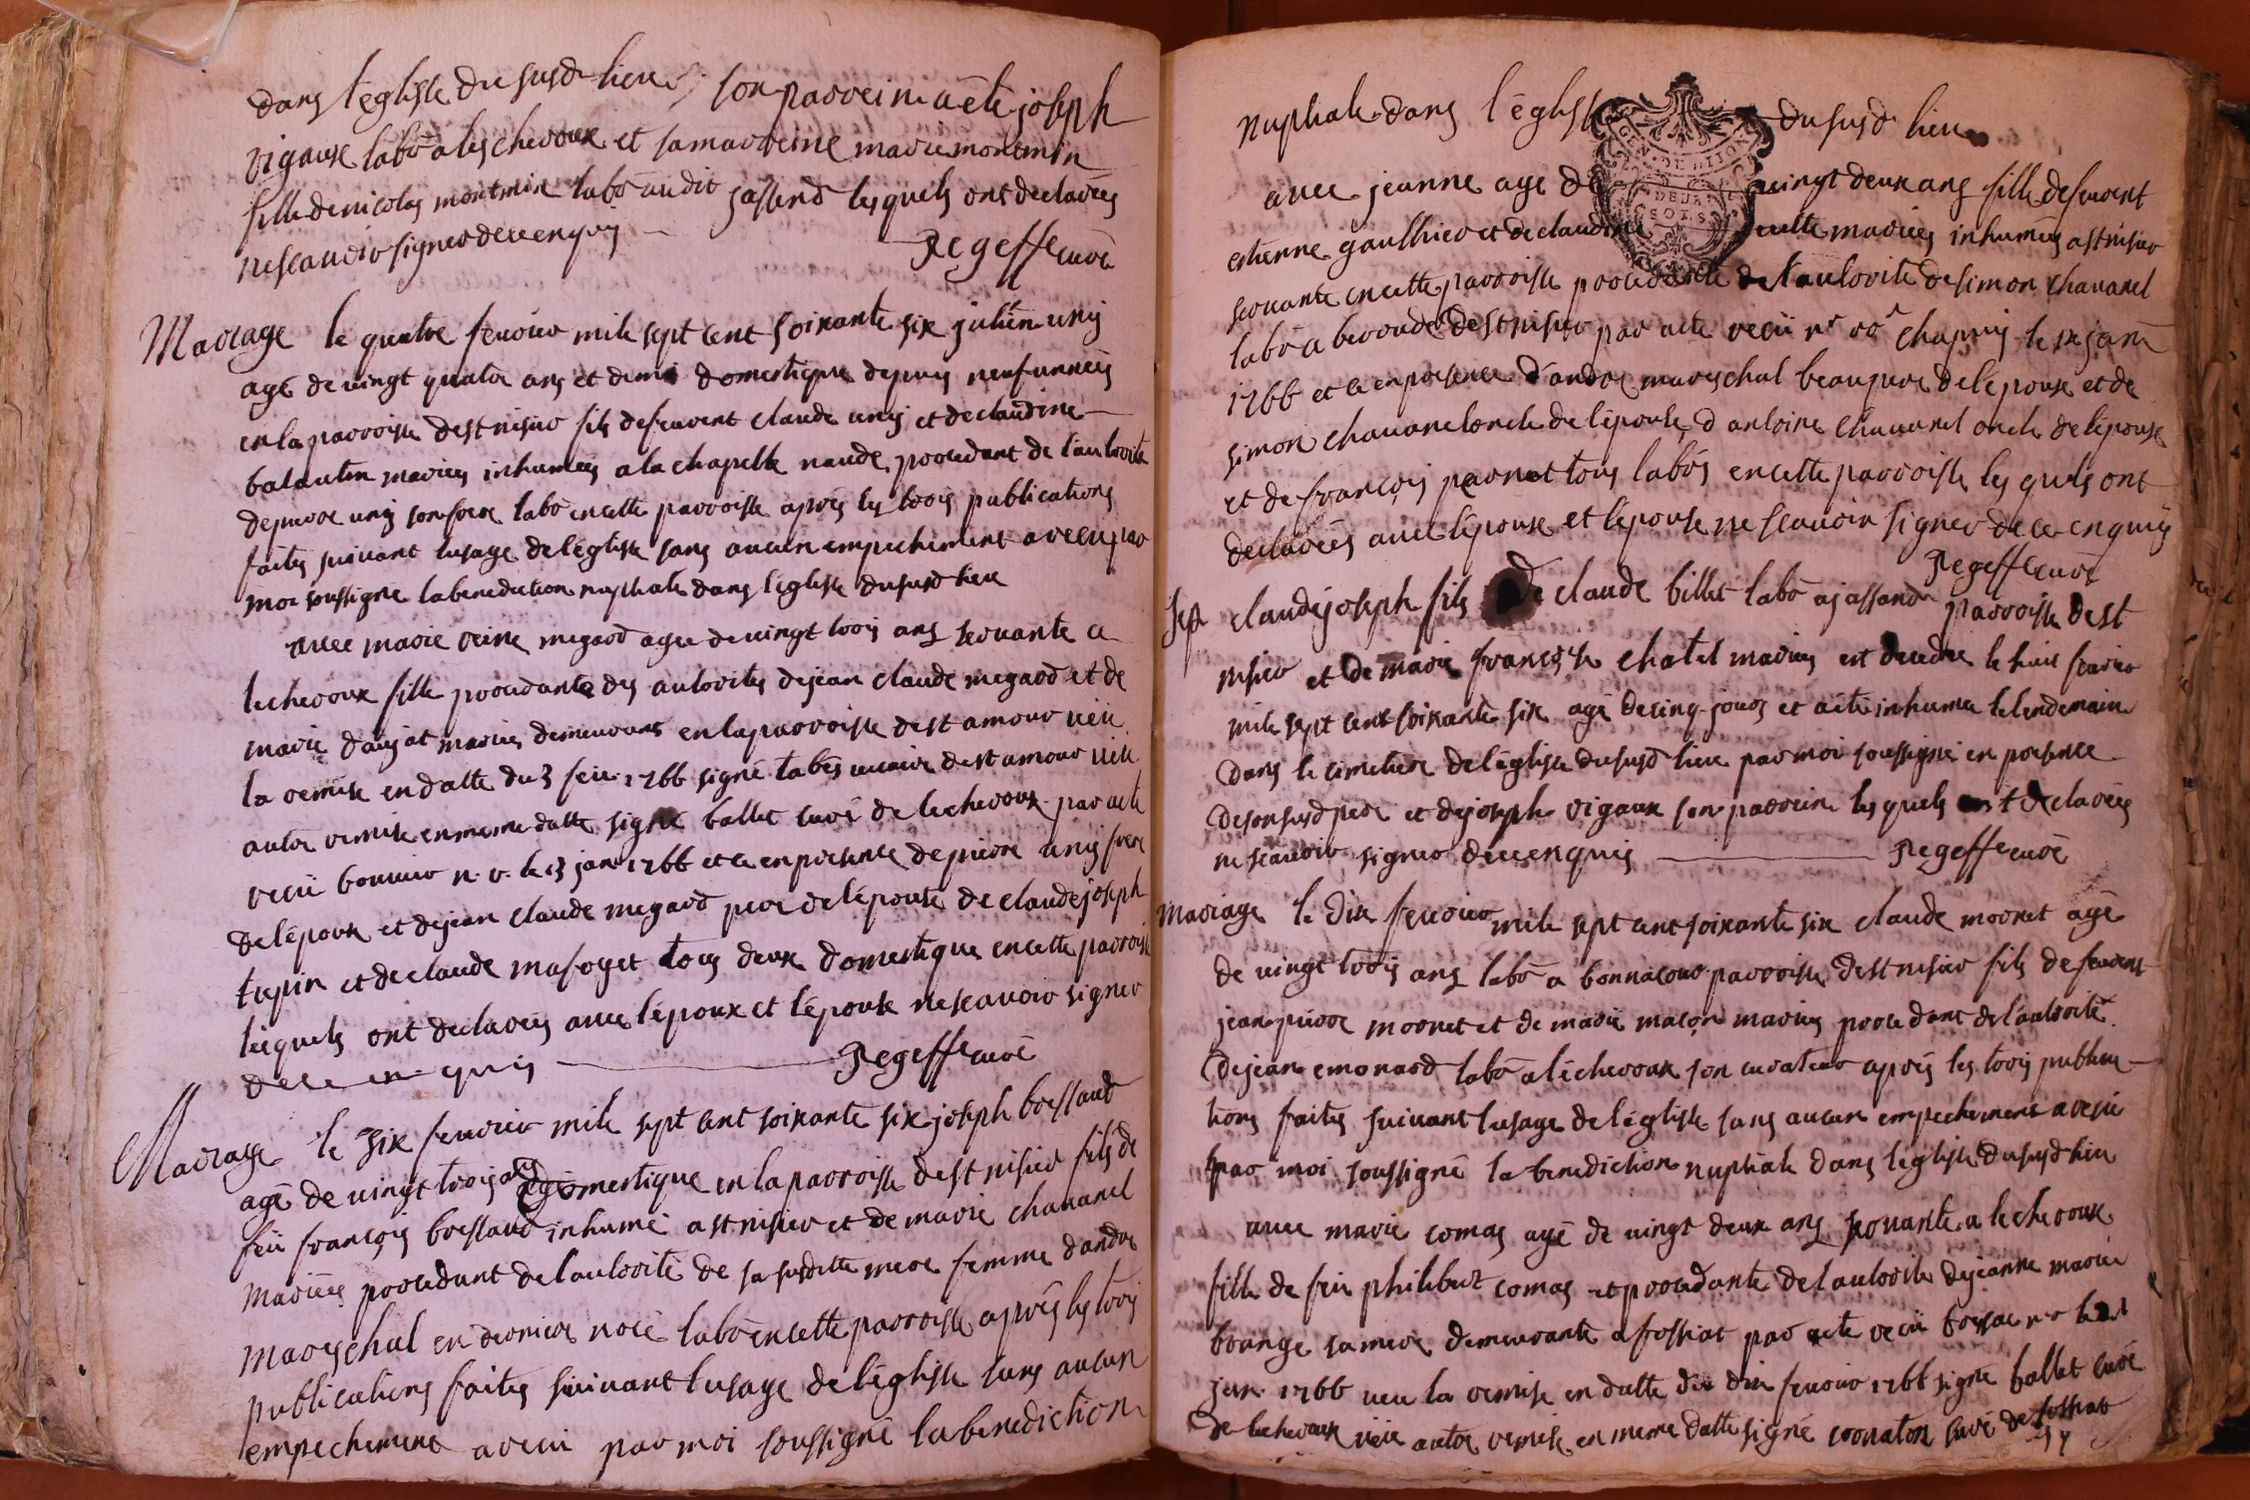 dans l'eglisse du susd lieu son parrein a êté joseph
vigaux labõ a leschevoux et sa marreine marie monmin
fille de nicolas montmin labõ audit jassend lesquels ont declarées
ne scavoir signer de ce enquis
Regeffe curé
Mariage le quatre fevrier mile sept cent soixante six julien uny
agé de vingt quatre ans et demi domestique depuis neuf années
en la parroisse de st nisier fils de feuvent claude uny et de claudine
balautin mariées inhumées a la chapelle naude, procedant de l'authorité
de pierre uny son frere labõ en cette parroisse apres les trois publications
faites suivant lusage de l'eglisse sans aucun empechement a recu par
moi soussigné la benediction nuptiale dans l'eglisse du susd lieu
avec marie reine megard agée de vingt trois ans servante a
lechevoux fille procedante des authorites de jean claude megard et de
marie daujat mariées demeurans en la parroisse de st amour veüe
la remise en datte du 3 fevr 1766 signé tabés vicaire de st amour veüe
autre remise en meme datte signé ballet curé de lechevoux par acte
recu bouvier n. r. le 13 janr 1766 et ce en presence de pierre uny frere
de l'epoux et de jean claude megard pere de l'epouse de claude joseph
tupin et de claude masoyet tous deux domestique en cette parroisse
lesquels ont declarées avec l'epoux et l'epouse ne scavoir signer
de ce enquis
Regeffe curé
Mariage le six fevrier mile sept cent soixante six joseph bressaud
agé de vingt trois ans domestique en la parroisse de st nisier fils de
feu françois bressaud inhumé a st nisier et de marie chavanel
mariées procedant de lauthorité de sa susditte mere femme d'andre
mareschal en derniere noce labõ en cette parroisse apres les trois
publications faites suivant lusage de l'eglisse sans aucun
empechement a recu par moi soussigné la benediction
nuptiale dans l'eglisse du susd lieu
GEN. DE DIJON
avec jeanne age de vingt deux ans fille de feuvent
DEUX SOLS
etienne gaulthier et de claudine mariées inhumées a st nisier
servante en cette parroisse procedante de l'authorité de simon chavanel
labõ a de st nisier par acte recü nr rol chapuis le janr
1766 et ce en presence d'andre mareschal beaupere de l'epoux et de
simon chavanel oncle de l'epouse, d'antoine chavanel oncle de l'epouse
et de françois pernet tous labõs en cette parroisse les quels ont
declarées avec l'epoux et lepouse ne scavoir signer de ce enquis
Regeffe curé
Sep claude joseph fils de claude billet labõ a jassand parroisse de st
nisier et de marie françoise chatel mariés est decedé le huit fevrier
mile sept cent soixante six agé de cinq jours et a eté inhumé le lendemain
dans le cimetiere de l'eglisse du susd lieu par moi soussigné en presence
de son susd pere et de joseph vigaux son parrein les quels ont declarées
ne scavoir signer de ce enquis
Regeffe curé
mariage le dix fevrier mile sept cent soixante six claude morret agé
de vingt trois ans labõ a bonnacour parroisse de st nisier fils de feuvent
jean pierre morret et de marie maçon mariés procedant de l'authorité
de jean emonard labõ a lechevoux son curateur apres les trois publica
tions faites suivant lusage de l'eglisse sans aucun empechement a recu
par moi soussigné la benediction nuptiale dans l'eglisse du susd lieu
avec marie comas agé de vingt deux ans servante a lechevoux
fille de feu philibert comas et procedante de lauthorité de jeanne marie
brange sa mere demeurante a frossiat par acte recu bressac nr le 21
janr 1766 veu la remise en datte du dix fevrier 1766 signé ballet curé
de lechevoux veüe autre remise en meme datte signé curé de fossiat